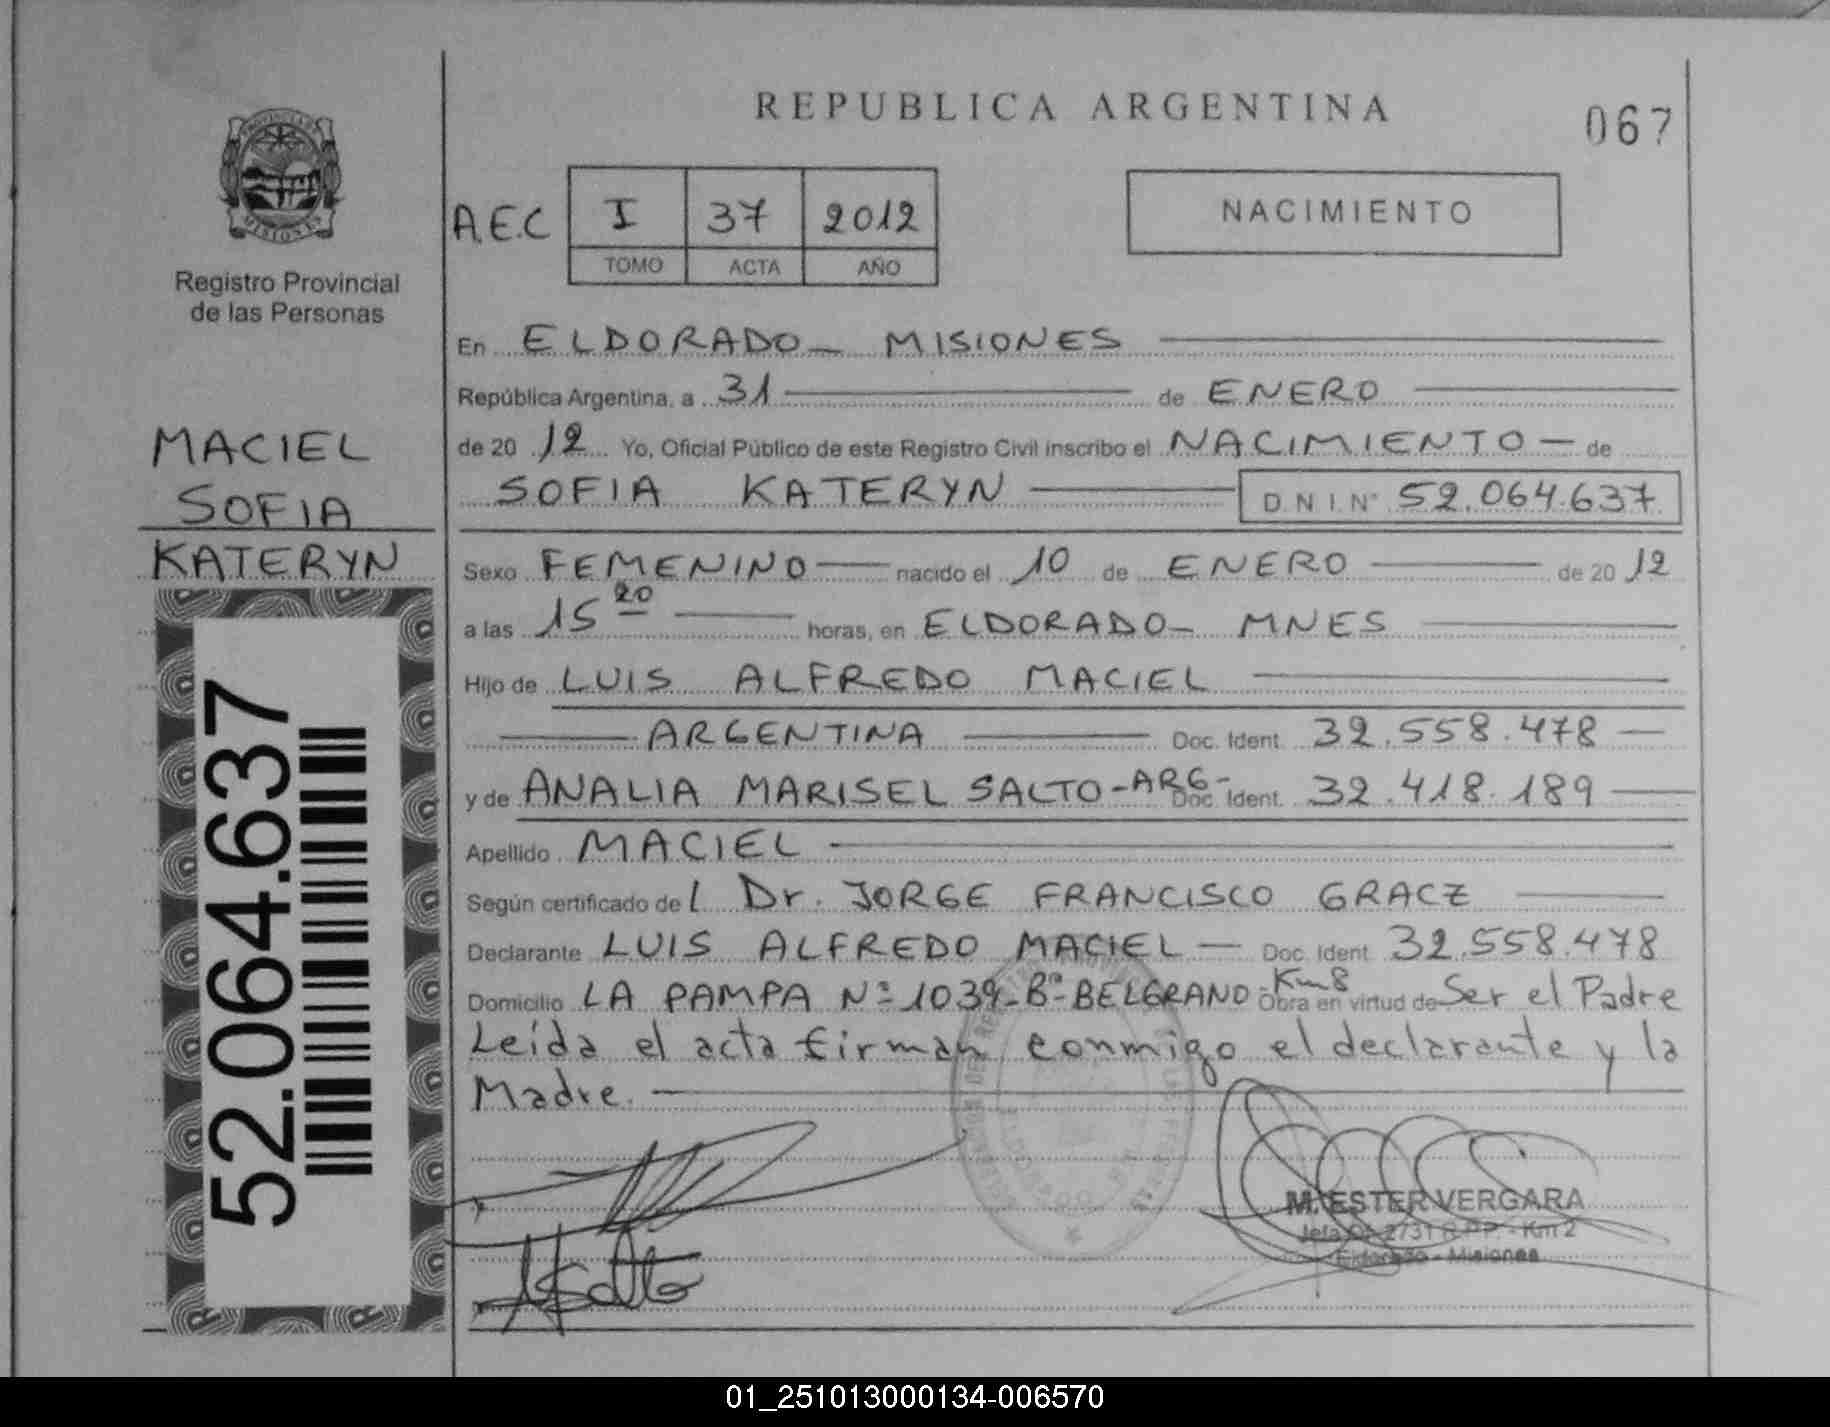 REPUBLICA ARGENTINA
067
PROVINCIA DE
MISIONES
Registro Provincial
de las Personas
A.E.C I 37 2012
TOMO ACTA AÑO
NACIMIENTO
En ELDORADO - MISIONES
República Argentina, a 31 de ENERO
de 20 12 Yo, Oficial Público de este Registro Civil inscribo el NACIMIENTO - de
SOFIA KATERYN D.N.I.N° 52.064.637
MACIEL
SOFIA
KATERYN
Sexo FEMENINO nacido el 10 de ENERO de 20 12
a las 15 20 horas, en ELDORADO - MNES
Hijo de LUIS ALFREDO MACIEL
ARGENTINA Doc. Ident. 32.558.478
y de ANALIA MARISEL SALTO - ARG - Doc. Ident. 32.418.189
Apellido MACIEL
Según certificado del Dr. JORGE FRANCISCO GRACZ
Declarante LUIS ALFREDO MACIEL - Doc. Ident. 32.558.478
Domicilio LA PAMPA Nº 1039 - Bº - BELGRANO - Km 8 Obra en virtud de Ser el Padre
Leída el acta firman conmigo el declarante y la
Madre.
52.064.637
ASalto
M. ESTER VERGARA
Jefa Of. 2731 R.P.P. - Km 2
Eldorado - Misiones
01_251013000134-006570